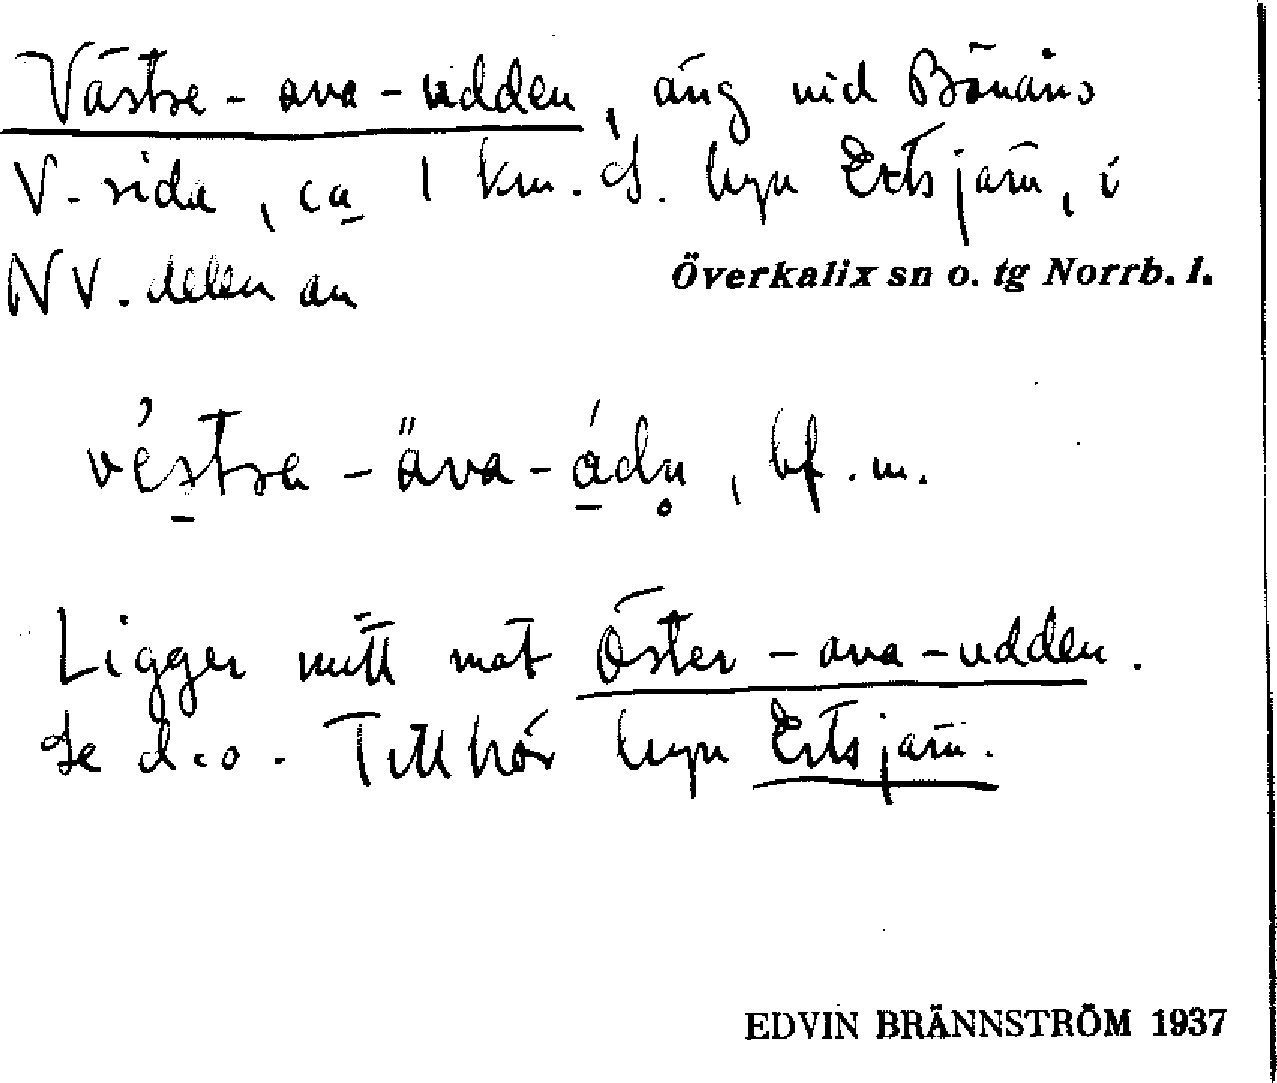 Västre-ava-udden, äng vid Bönåns
V. sida, ca 1 km. S. byn Ertsjärn, i
NV. delen av Överkalix sn o. tg Norrb. l.
véstra-äva-ádn̥, bf. m.
Ligger mitt mot Öster-ava-udden.
Se d:o. Tillhör byn Ertsjärn.
EDVIN BRÄNNSTRÖM 1937